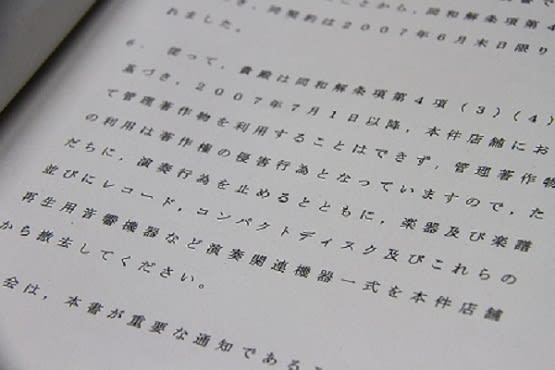 き、同契約は2007年6月末日限り
れました。
6. 従って、貴殿は同和解条項第4項(3)(4)
基づき、2007年7月1日以降、本件店舗にお
て管理著作物を利用することはできず、管理著作物
の利用は著作権の侵害行為となっていますので、た
だちに、演奏行為を止めるとともに、楽器及び楽譜
並びにレコード、コンパクトディスク及びこれらの
再生用音響機器など演奏関連機器一式を本件店舗
から撤去してください。
会は、本書が重要な通知であるこ